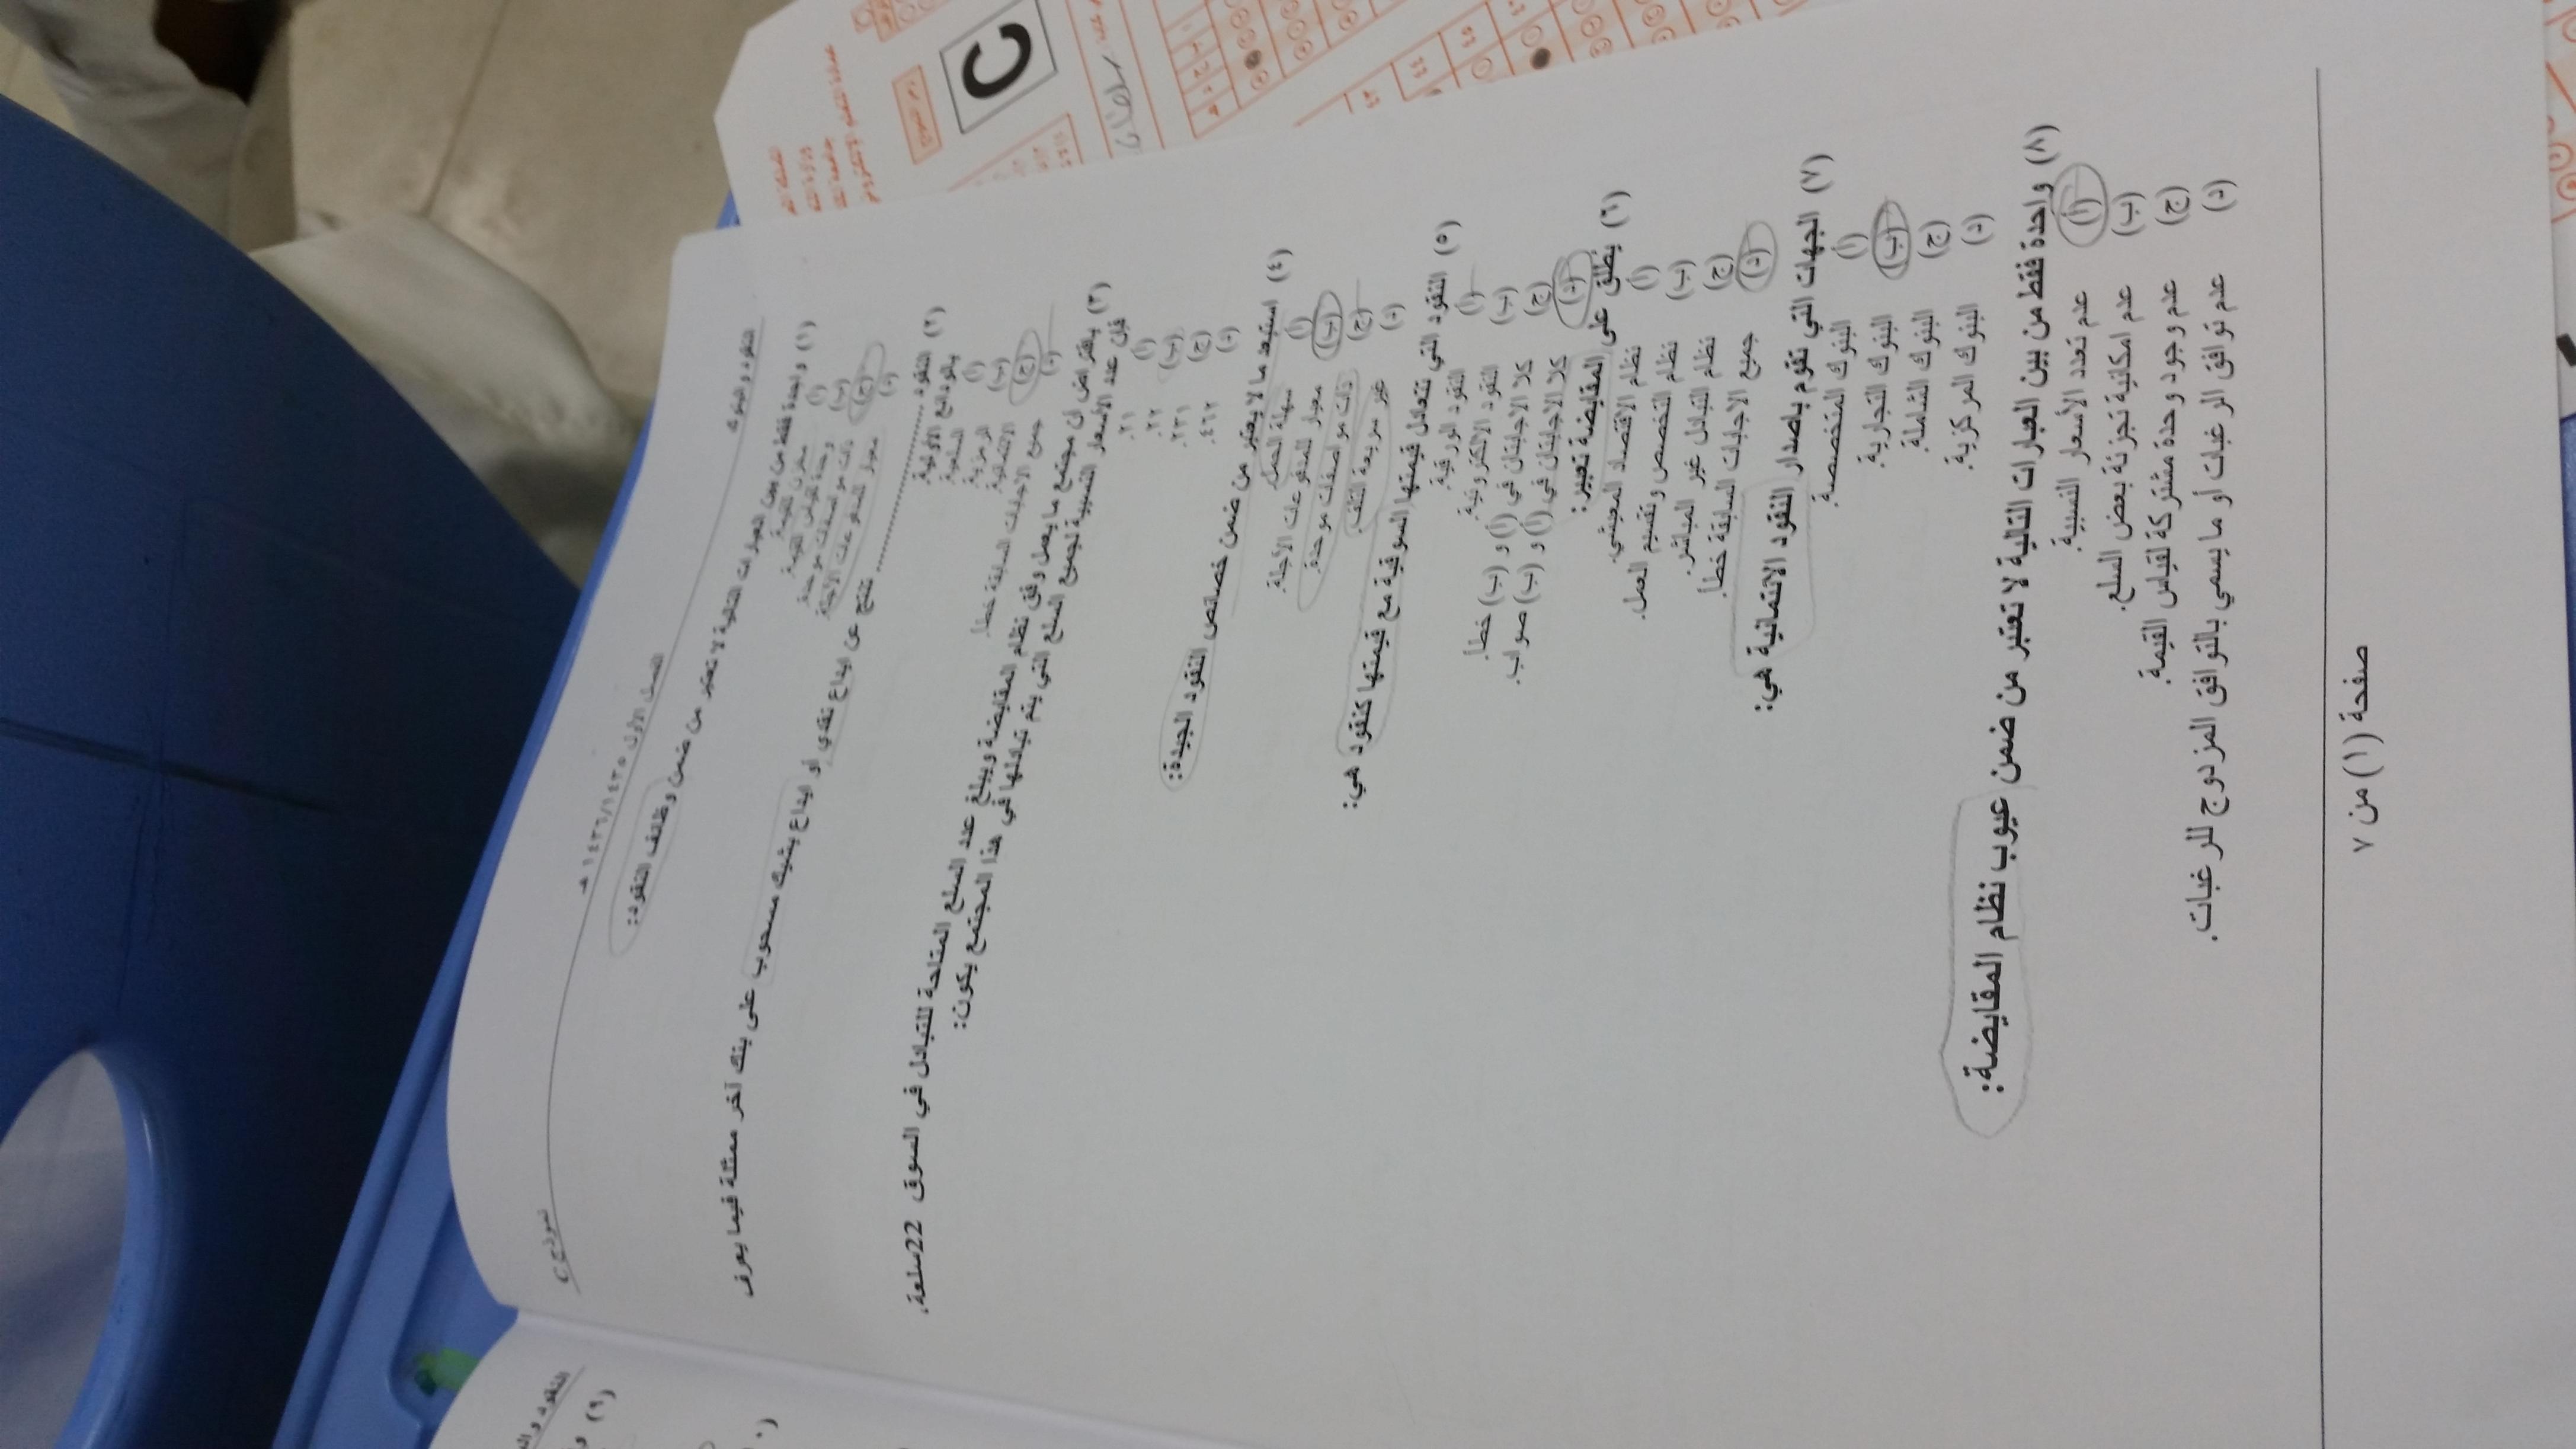 النقود والبنوك
الفصل الأول ١٤٣٦/١٤٣٥ هـ
نموذج C
(١) واحدة فقط من بين العبارات التالية لا تعتبر من ضمن وظائف النقود:
(أ) مخزن للقيمة.
(ب) وحدة لقياس القيمة.
(ج) ذات مواصفات موحدة.
(د) معيار للمدفوعات الآجلة.
(٢) النقود .................... تنتج عن ايداع نقدي أو ايداع بشيك مسحوب على بنك آخر ممثلة فيما يعرف
بالودائع الأولية.
(أ) السلعية.
(ب) الرمزية.
(ج) الائتمانية.
(د) جميع الاجابات السابقة خطأ.
(٣) بافتراض أن مجتمع ما يعمل وفق نظام المقايضة ويبلغ عدد السلع المتاحة للتبادل في السوق 22سلعة.
فإن عدد الأسعار النسبية لجميع السلع التي يتم تبادلها في هذا المجتمع يكون:
(أ) ٢١.
(ب) ٢٢.
(ج) ٢٣١.
(د) ٤٦٢.
(٤) استبعد ما لا يعتبر من ضمن خصائص النقود الجيدة:
(أ) سهلة الحمل.
(ب) معيار للمدفوعات الآجلة.
(ج) ذات مواصفات موحدة.
(د) غير سريعة التلف.
(٥) النقود التي تتعادل قيمتها السوقية مع قيمتها كنقود هي:
(أ) النقود الورقية.
(ب) النقود الالكترونية.
(ج) كلا الاجابتان في (أ) و (ب) خطأ.
(د) كلا الاجابتان في (أ) و (ب) صواب.
(٦) يطلق على المقايضة تعبير:
(أ) نظام الاقتصاد المعيشي.
(ب) نظام التخصص وتقسيم العمل.
(ج) نظام التبادل غير المباشر.
(د) جميع الاجابات السابقة خطأ.
(٧) الجهات التي تقوم باصدار النقود الائتمانية هي:
(أ) البنوك المتخصصة.
(ب) البنوك التجارية.
(ج) البنوك الشاملة.
(د) البنوك المركزية.
(٨) واحدة فقط من بين العبارات التالية لا تعتبر من ضمن عيوب نظام المقايضة:
(أ) عدم تعدد الأسعار النسبية.
(ب) عدم امكانية تجزئة بعض السلع.
(ج) عدم وجود وحدة مشتركة لقياس القيمة.
(د) عدم توافق الرغبات أو ما يسمي بالتوافق المزدوج للرغبات.
صفحة (١) من ٧
C
النقود
(٩)